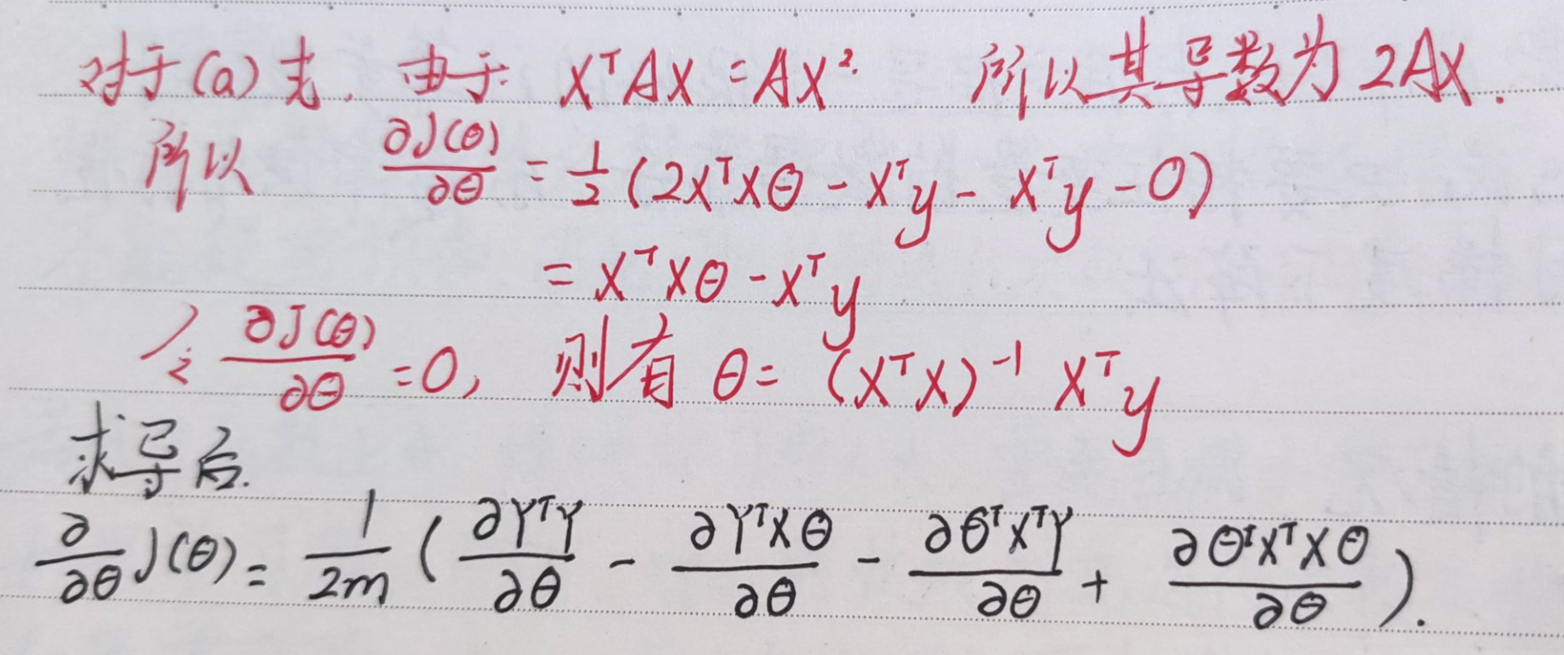 对于(a)式. 由于 XᵀAX = AX². 所以其导数为 2AX.
所以 ∂J(θ)/∂θ = 1/2 (2XᵀXθ - Xᵀy - Xᵀy - 0)
= XᵀXθ - Xᵀy
令 ∂J(θ)/∂θ = 0, 则有 θ = (XᵀX)⁻¹ Xᵀy
求导后.
∂/∂θ J(θ) = 1/2m ( ∂YᵀY/∂θ - ∂YᵀXθ/∂θ - ∂θᵀXᵀY/∂θ + ∂θᵀXᵀXθ/∂θ ).